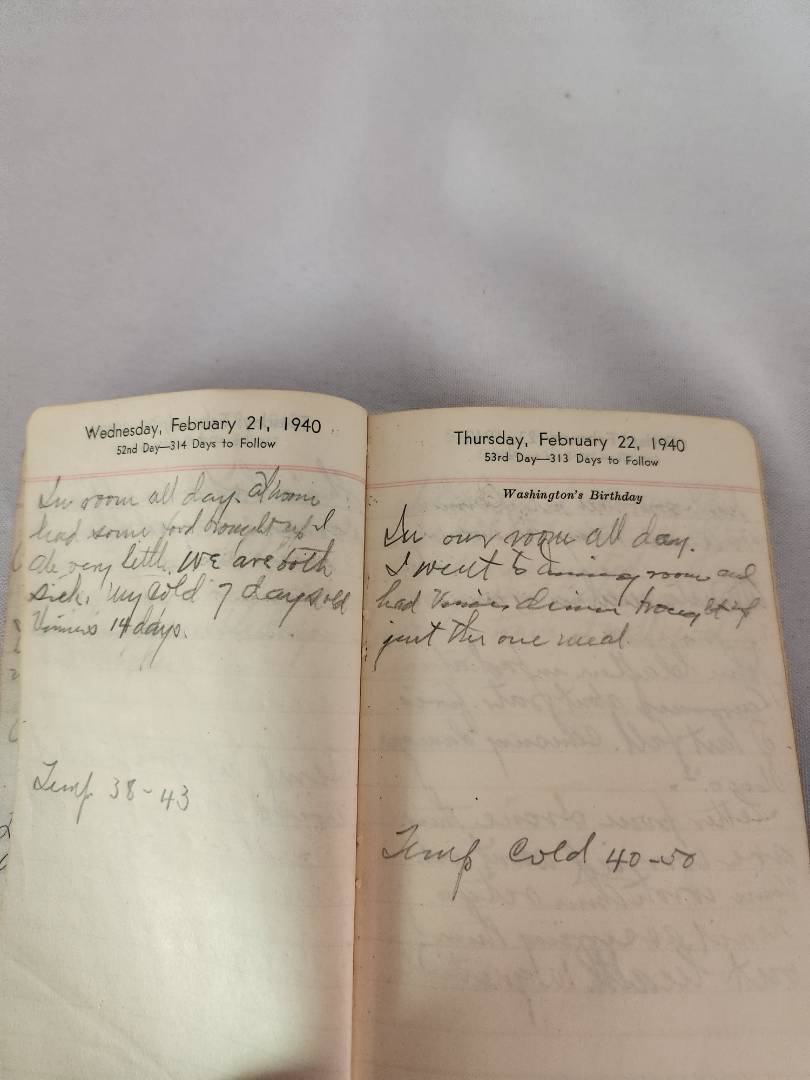 Wednesday, February 21, 1940
52nd Day—314 Days to Follow
In room all day. At noon
had some food brought up I
ate very little. WE are both
sick. My cold 7 days old
14 days.
Temp 38-43
Thursday, February 22, 1940
53rd Day—313 Days to Follow
Washington's Birthday
In our room all day.
I went to dining room and
had dinner brought up
just the one meal.
Temp Cold 40-50